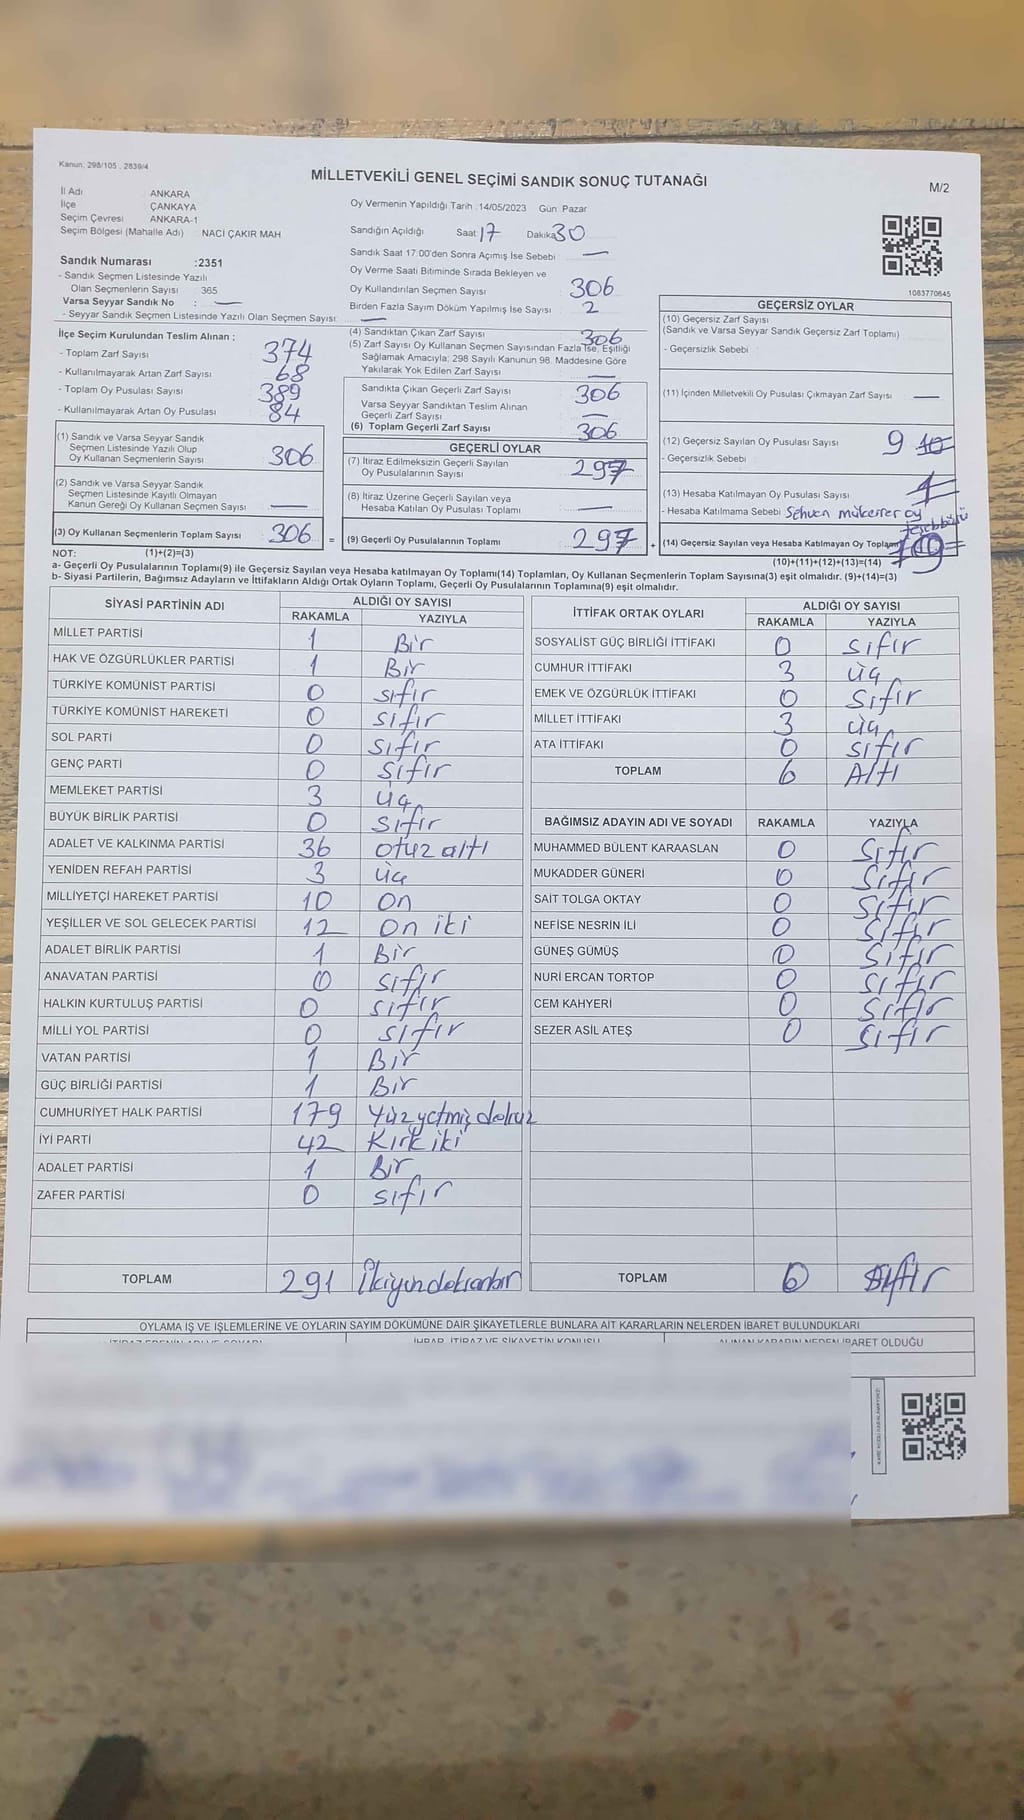 Kanun: 298/105 , 2839/4
MİLLETVEKİLİ GENEL SEÇİMİ SANDIK SONUÇ TUTANAĞI
M/2
İl Adı ANKARA
İlçe ÇANKAYA
Seçim Çevresi ANKARA-1
Seçim Bölgesi (Mahalle Adı) NACİ ÇAKIR MAH
Sandık Numarası :2351
- Sandık Seçmen Listesinde Yazılı
Olan Seçmenlerin Sayısı : 365
Varsa Seyyar Sandık No : —
- Seyyar Sandık Seçmen Listesinde Yazılı Olan Seçmen Sayısı: —
İlçe Seçim Kurulundan Teslim Alınan ;
- Toplam Zarf Sayısı 374
- Kullanılmayarak Artan Zarf Sayısı 68
- Toplam Oy Pusulası Sayısı 389
- Kullanılmayarak Artan Oy Pusulası 84
(1) Sandık ve Varsa Seyyar Sandık
Seçmen Listesinde Yazılı Olup
Oy Kullanan Seçmenlerin Sayısı 306
(2) Sandık ve Varsa Seyyar Sandık
Seçmen Listesinde Kayıtlı Olmayan
Kanun Gereği Oy Kullanan Seçmen Sayısı —
(3) Oy Kullanan Seçmenlerin Toplam Sayısı 306 =
Oy Vermenin Yapıldığı Tarih :14/05/2023 Gün: Pazar
Sandığın Açıldığı Saat: 17 Dakika: 30
Sandık Saat 17:00'den Sonra Açımış İse Sebebi —
Oy Verme Saati Bitiminde Sırada Bekleyen ve
Oy Kullandırılan Seçmen Sayısı 306
Birden Fazla Sayım Döküm Yapılmış İse Sayısı 2
(4) Sandıktan Çıkan Zarf Sayısı 306
(5) Zarf Sayısı Oy Kullanan Seçmen Sayısından Fazla İse, Eşitliği
Sağlamak Amacıyla; 298 Sayılı Kanunun 98. Maddesine Göre
Yakılarak Yok Edilen Zarf Sayısı —
Sandıkta Çıkan Geçerli Zarf Sayısı 306
Varsa Seyyar Sandıktan Teslim Alınan
Geçerli Zarf Sayısı —
(6) Toplam Geçerli Zarf Sayısı 306
GEÇERLİ OYLAR
(7) İtiraz Edilmeksizin Geçerli Sayılan
Oy Pusulalarının Sayısı 297
(8) İtiraz Üzerine Geçerli Sayılan veya
Hesaba Katılan Oy Pusulası Toplamı —
(9) Geçerli Oy Pusulalarının Toplamı 297 +
1083770645
GEÇERSİZ OYLAR
(10) Geçersiz Zarf Sayısı
(Sandık ve Varsa Seyyar Sandık Geçersiz Zarf Toplamı)
- Geçersizlik Sebebi
(11) İçinden Milletvekili Oy Pusulası Çıkmayan Zarf Sayısı —
(12) Geçersiz Sayılan Oy Pusulası Sayısı 9 10
- Geçersizlik Sebebi
(13) Hesaba Katılmayan Oy Pusulası Sayısı 1
- Hesaba Katılmama Sebebi Sehven mükerrer oy
(14) Geçersiz Sayılan veya Hesaba Katılmayan Oy Toplamı
NOT: (1)+(2)=(3)
(10)+(11)+(12)+(13)=(14)
a- Geçerli Oy Pusulalarının Toplamı(9) ile Geçersiz Sayılan veya Hesaba katılmayan Oy Toplamı(14) Toplamları, Oy Kullanan Seçmenlerin Toplam Sayısına(3) eşit olmalıdır. (9)+(14)=(3)
b- Siyasi Partilerin, Bağımsız Adayların ve İttifakların Aldığı Ortak Oyların Toplamı, Geçerli Oy Pusulalarının Toplamına(9) eşit olmalıdır.
SİYASİ PARTİNİN ADI ALDIĞI OY SAYISI
RAKAMLA YAZIYLA
MİLLET PARTİSİ 1 Bir
HAK VE ÖZGÜRLÜKLER PARTİSİ 1 Bir
TÜRKİYE KOMÜNİST PARTİSİ 0 sıfır
TÜRKİYE KOMÜNİST HAREKETİ 0 sıfır
SOL PARTİ 0 sıfır
GENÇ PARTİ 0 sıfır
MEMLEKET PARTİSİ 3 üç
BÜYÜK BİRLİK PARTİSİ 0 sıfır
ADALET VE KALKINMA PARTİSİ 36 otuz altı
YENİDEN REFAH PARTİSİ 3 üç
MİLLİYETÇİ HAREKET PARTİSİ 10 on
YEŞİLLER VE SOL GELECEK PARTİSİ 12 on iki
ADALET BİRLİK PARTİSİ 1 Bir
ANAVATAN PARTİSİ 0 sıfır
HALKIN KURTULUŞ PARTİSİ 0 sıfır
MİLLİ YOL PARTİSİ 0 sıfır
VATAN PARTİSİ 1 Bir
GÜÇ BİRLİĞİ PARTİSİ 1 Bir
CUMHURİYET HALK PARTİSİ 179 Yüzyetmiş dokuz
İYİ PARTİ 42 Kırk iki
ADALET PARTİSİ 1 Bir
ZAFER PARTİSİ 0 sıfır
TOPLAM 291 İkiyüzdoksanbir
İTTİFAK ORTAK OYLARI ALDIĞI OY SAYISI
RAKAMLA YAZIYLA
SOSYALİST GÜÇ BİRLİĞİ İTTİFAKI 0 sıfır
CUMHUR İTTİFAKI 3 üç
EMEK VE ÖZGÜRLÜK İTTİFAKI 0 sıfır
MİLLET İTTİFAKI 3 üç
ATA İTTİFAKI 0 sıfır
TOPLAM 6 Altı
BAĞIMSIZ ADAYIN ADI VE SOYADI RAKAMLA YAZIYLA
MUHAMMED BÜLENT KARAASLAN 0 Sıfır
MUKADDER GÜNERİ 0 Sıfır
SAİT TOLGA OKTAY 0 Sıfır
NEFİSE NESRİN İLİ 0 Sıfır
GÜNEŞ GÜMÜŞ 0 Sıfır
NURİ ERCAN TORTOP 0 Sıfır
CEM KAHYERİ 0 Sıfır
SEZER ASİL ATEŞ 0 Sıfır
TOPLAM 0 Sıfır
OYLAMA İŞ VE İŞLEMLERİNE VE OYLARIN SAYIM DÖKÜMÜNE DAİR ŞİKAYETLERLE BUNLARA AİT KARARLARIN NELERDEN İBARET BULUNDUKLARI
İTİRAZ EDENİN ADI VE SOYADI İHBAR, İTİRAZ VE ŞİKAYETİN KONUSU ALINAN KARARIN NEDEN İBARET OLDUĞU